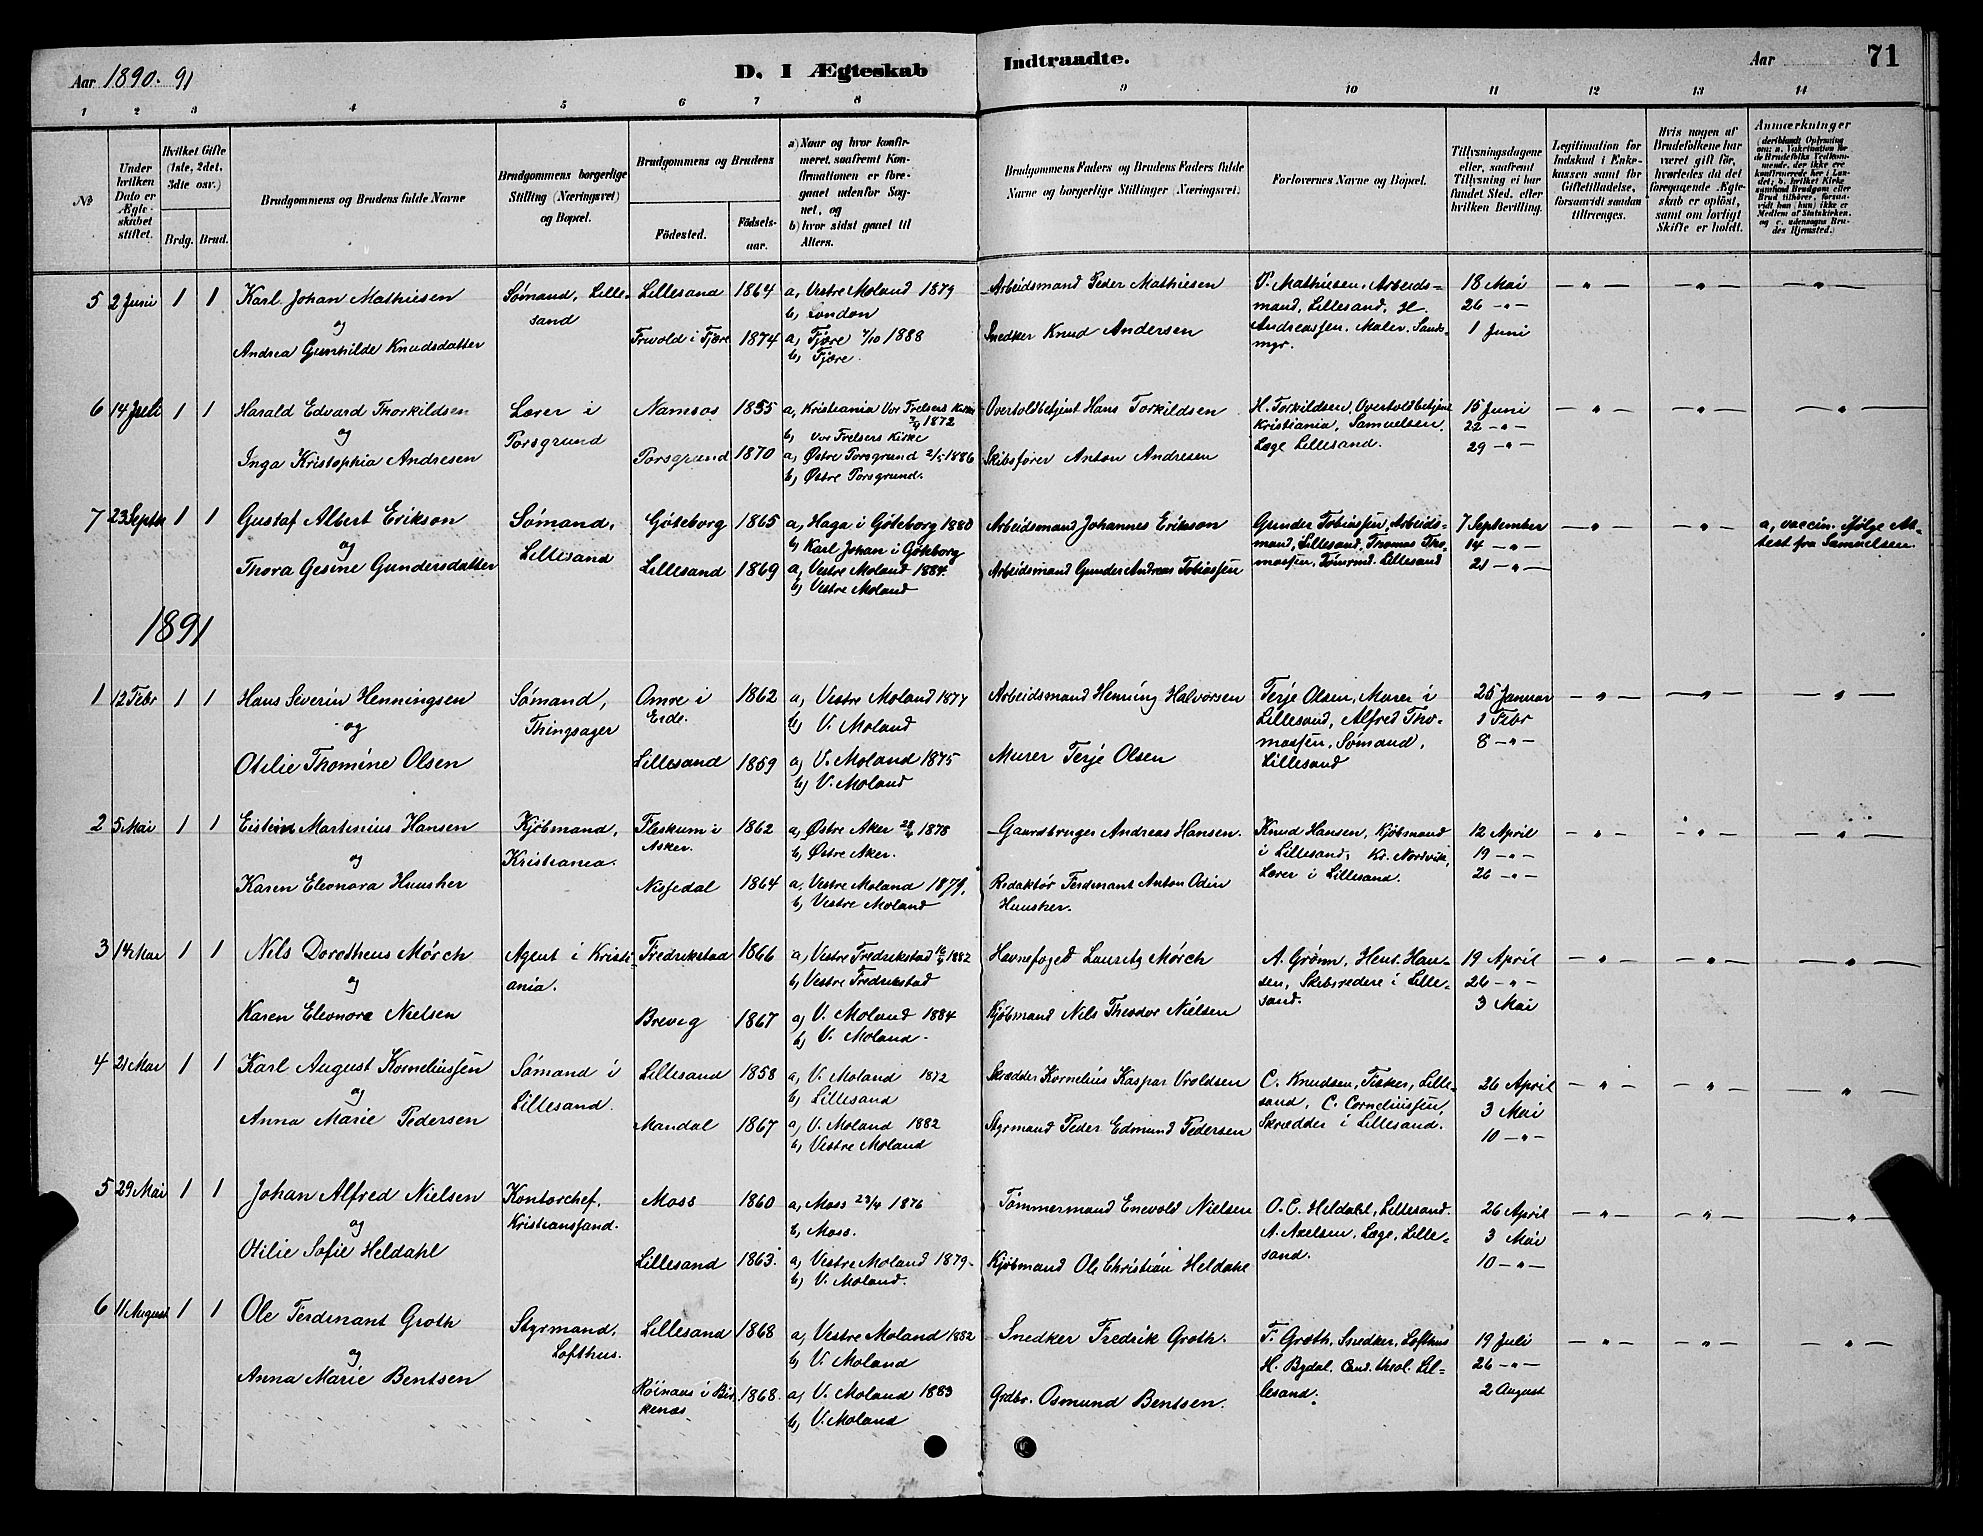 Aar 1890. 91
D. I Ægteskab
Indtraadte.
Aar
71
1 2 3 4 5 6 7 8 9 10 11 12 13 14
№
Under hvilken Dato er Ægteskabet stiftet.
Hvilket Gifte (1ste, 2det, 3die osv.)
Brdg. Brud.
Brudgommens og Brudens fulde Navne
Brudgommens borgerlige Stilling (Næringsvei) og Bopæl.
Brudgommens og Brudens
Födested.
Födselsaar.
a) Naar og hvor konfirmeret, saafremt Konfirmationen er foregaaet udenfor Sognet, og
b) hvor sidst gaaet til Alters.
Brudgommens Faders og Brudens Faders fulde Navne og borgerlige Stillinger (Næringsvei).
Forlovernes Navne og Bopæl.
Tillysningsdagene eller, saafremt Tillysning ei har fundet Sted, efter hvilken Bevilling.
Legitimation for Indskud i Enkekassen samt for Giftetilladelse, forsaavidt saadan tiltrænges.
Hvis nogen af Brudefolkene har været gift för, hvorledes da det foregaaende Ægteskab er oplöst, samt om lovligt Skifte er holdt.
Anmærkninger
5 2 Juni 1 1 Karl Johan Mathiesen
og
Andrea Gunhilde Knudsdatter
Sømand, Lille-
sand
Lillesand 1864 a, Vestre Moland 1879
b, London
Frivold i Fjære 1874 a, Fjære 7/10 1888
b, Fjære.
Arbeidsmand Peder Mathiesen
Snedker Knud Andersen
P. Mathiesen, Arbeids-
mand, Lillesand, H.
Andreassen, Maler, Sands-
mgr.
18 Mai
26 -"-
1 Juni
6 14 Juli 1 1 Harald Edvard Thorkildsen
og
Inga Kristophia Andresen
Lærer i
Porsgrund
Namsos 1855 a, Kristiania Vor Frelsers Kirke
1872
b, Vor Frelsers Kirke
Porsgrund 1870 a, Østre Porsgrund 1886
b, Østre Porsgrund.
Overtoldbetjent Hans Torkildsen
Skibsfører Anton Andresen
H. Torkildsen, Overtoldbetjent
Kristiania, Samuelsen,
Læge Lillesand.
15 Juni
22 -"-
29 -"-
7 23 Septbr 1 1 Gustaf Albert Erikson
og
Thora Gesine Gundersdatter
Sømand,
Lillesand
Göteborg 1865 a, Haga i Göteborg 1880
b, Karl Johan i Göteborg
Lillesand 1869 a, Vestre Moland 1884.
b, Vestre Moland
Arbeidsmand Johannes Erikson
Arbeidsmand Gunder Andreas Tobiassen
Gunder Tobiassen, Arbeids-
mand, Lillesand, Thomas Tho-
massen, Tømrmd. Lillesand
7 September
14 -"-
21 -"-
a, vaccin. ifølge At-
test fra Samuelsen.
1891
1 12 Febr 1 1 Hans Severin Henningsen
og
Otilie Thomine Olsen
Sømand,
Thingsager
Omre i
Eide. 1862 a, Vestre Moland 1877
b, V. Moland
Lillesand 1859 a, V. Moland 1875
b, V. Moland
Arbeidsmand Henning Halvorsen
Murer Terje Olsen
Terje Olsen, Murer i
Lillesand, Alfred Tho-
massen, Sømand,
Lillesand
25 Januar
1 Febr
8 -"-
2 5 Mai 1 1 Eistein Martinius Hansen
og
Karen Eleonora Huusher
Kjøbmand,
Kristiania.
Fleskum i
Asker. 1862 a, Østre Aker 1878
b, Østre Aker.
Nissedal 1864 a, Vestre Moland 1879.
b, Vestre Moland
Gaardbruger Andreas Hansen.
Redaktør Ferdinant Anton Odin
Huusher.
Knud Hansen, Kjøbmand
i Lillesand, Kr. Nordvik,
Lærer i Lillesand.
12 April
19 -"-
26 -"-
3 14 Mai 1 1 Nils Dorotheus Mørch
og
Karen Eleonora Nielsen
Agent i Kristi-
ania.
Fredrikstad 1866 a, Vestre Fredrikstad 1882
b, Vestre Fredrikstad
Brevig 1867 a, V. Moland 1884
b, V. Moland.
Havnefoged Lauritz Mørch
Kjøbmand Nils Theodor Nielsen
A. Grønn, Henr. Han-
sen, Skibsredere i Lille-
sand.
19 April
26 -"-
3 Mai
4 21 Mai 1 1 Karl August Korneliussen
og
Anna Marie Pedersen
Sømand i
Lillesand.
Lillesand 1858 a, V. Moland 1872
b, Lillesand
Mandal 1867 a, V. Moland 1882
b, Vestre Moland
Skrædder Kornelius Kaspar Uroldsen
Styrmand Peder Edmund Pedersen
C. Knudsen, Fisker, Lille-
sand, C. Corneliussen,
Skrædder i Lillesand.
26 April
3 Mai
10 -"-
5 29 Mai 1 1 Johan Alfred Nielsen
og
Otilie Sofie Heldahl
Kontorchef,
Kristianssand.
Moss 1860 a, Moss 23/4 1876
b, Moss.
Lillesand 1863. a, Vestre Moland 1879.
b, V. Moland.
Tømmermand Enevold Nielsen
Kjøbmand Ole Christian Heldahl
O. C. Heldahl, Lillesand.
A. Axelsen, Læge, Lille-
sand.
26 April
3 Mai
10 -"-
6 11 August 1 1 Ole Ferdinant Groth
og
Anna Marie Bentsen
Styrmand,
Lofthus.
Lillesand 1868 a, Vestre Moland 1882
b, V. Moland
Røinaas i Bir-
kenæs 1868. a, V. Moland 1883
b, V. Moland
Snedker Fredrik Groth.
Grdbr. Osmund Bentsen.
F. Groth, Snedker, Lofthus
H. Bydal, Cand. theol. Lil-
lesand.
19 Juli
26 -"-
2 August